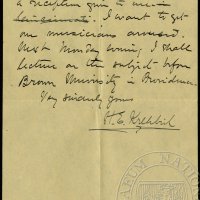 a reception given to me in
Cincinnati. I want to get
our musicians aroused.
Next Monday evening I shall
lecture on the subject before
Brown University in Providence.
Very sincerely yours
H. E. Krehbiel